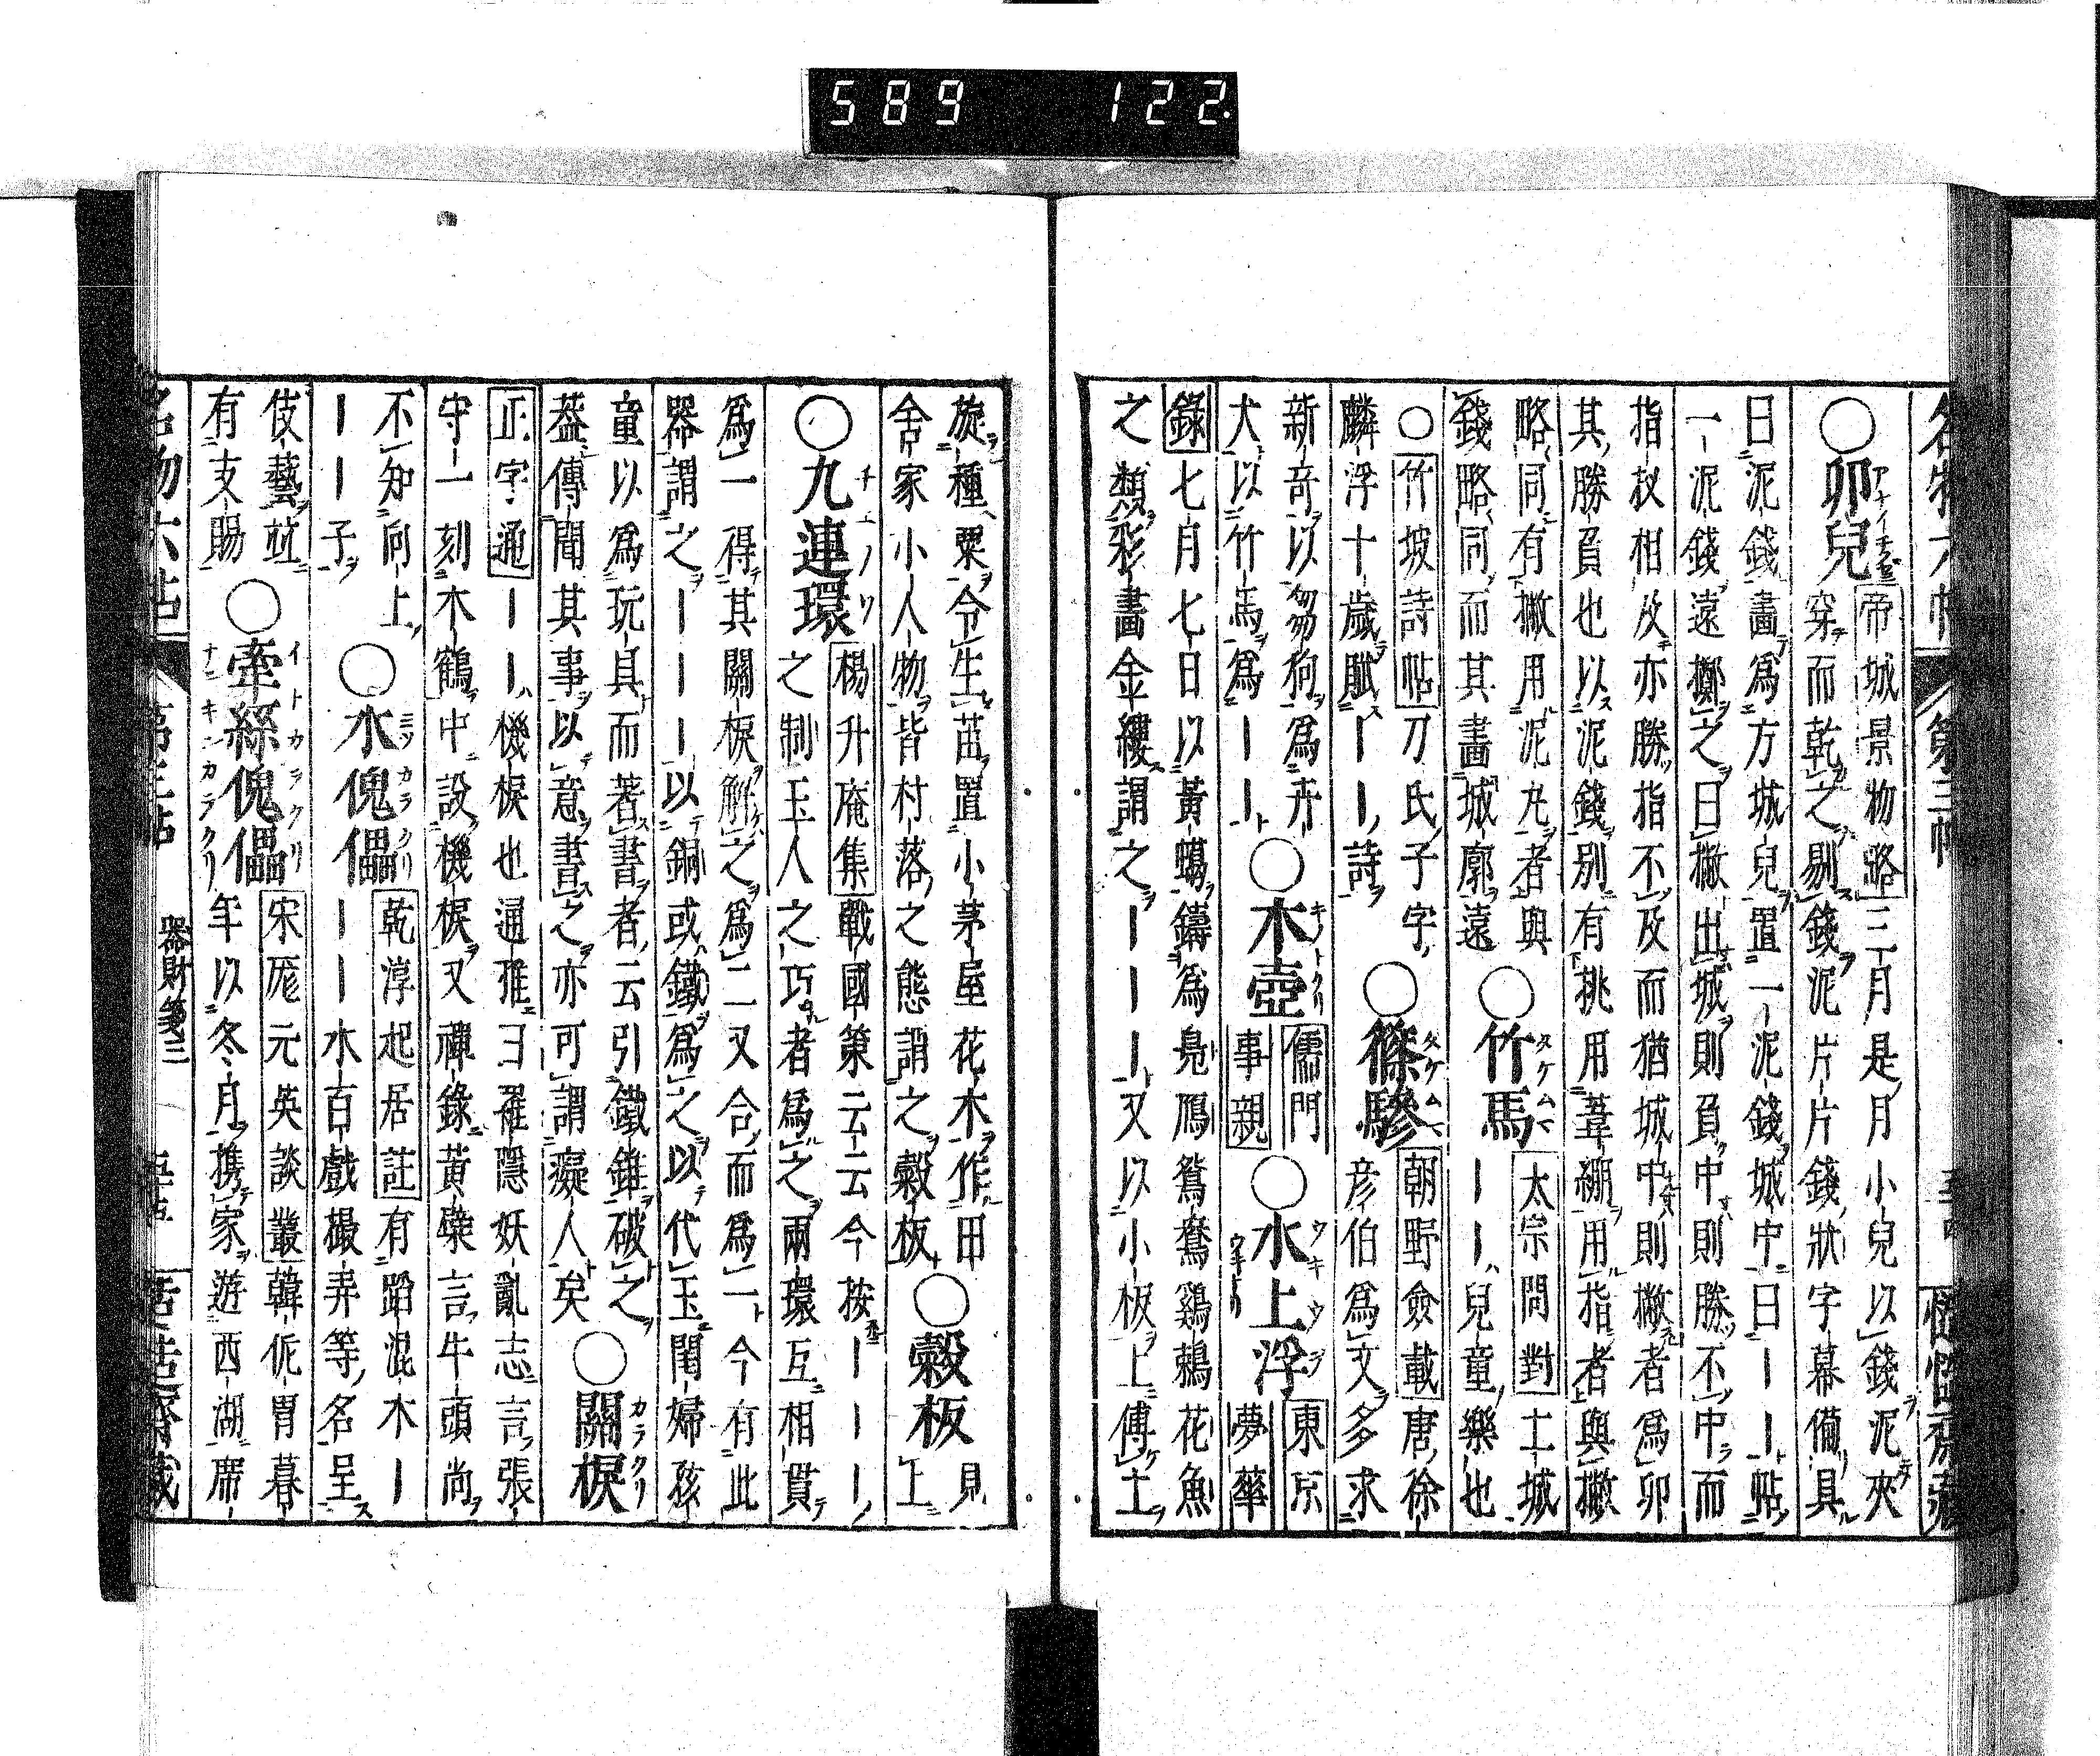 589 122.
第三帖
○卯兒 帝城景物略 三月是月小兒以錢泥夾
穿而乾之剔錢泥片片錢狀字幕備具
曰泥錢畫爲方城兒置一泥錢城中曰――帖
一泥錢遠擲之曰撇出城則負中則勝不中而
指杈相及亦勝指不及而猶城中則撇者爲卯
其勝負也以泥錢別有挑用葦繃用指者與撇
略同有撇用泥丸者與
錢略同而其畫城廓遠
○竹馬 太宗問對 土城
――兒童樂也
○竹坡詩帖 刀氏子字
麟浮十歲賦――詩
○篠驂 朝野僉載 唐徐
彦伯爲文多求
新奇以芻狗爲卉
犬以竹馬爲――
○木壺 儒門
事親
○水上浮 東京
夢華
錄 七月七日以黃蠟鑄爲鳧鴈鴛鴦鷄鶒花魚
之類彩畫金縷謂之―――又以小板上傅土
旋種粟令生苗置小茅屋花木作田
舍家小人物皆村落之態謂之穀板
○穀板 見
上
○九連環 楊升庵集 戰國策云云今按―――
之制玉人之巧者爲之兩環互相貫
爲一得其關棙解之爲二又合而爲一今有此
器謂之―――以銅或鐵爲之以代玉閨婦孩
童以爲玩具而著書者云引鐵錐破之
葢傳聞其事以意書之亦可謂癡人矣
○關棙
正字通 ――機棙也通雅曰羅隱妖亂志言張
守一刻木鶴中設機棙又禪錄黃檗言牛頭尚
不知向上
―――子
○水傀儡 乾淳起居註 有蹈混木―
―――水百戲撮弄等名呈
伎藝竝
有支賜
○牽絲傀儡 宋厖元英談叢 韓侂胄暮
年以冬月携家遊西湖席
器財箋三